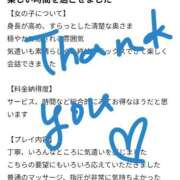 楽しい時間を過ごせました
【女の子について】
身長が高め、すらっとした清楚な奥さま
穏やか
気遣いも素晴らし
会話できました
thank
you
【料金納得度】
サービス、時間など総合的に
てお得なほうだと思い
ます
【プレイ内容】
丁寧、いろんなところに気遣いを
こちらの要望にもいろいろ応えていただきました
普通のマッサージ、指圧が非常に気持ちよか